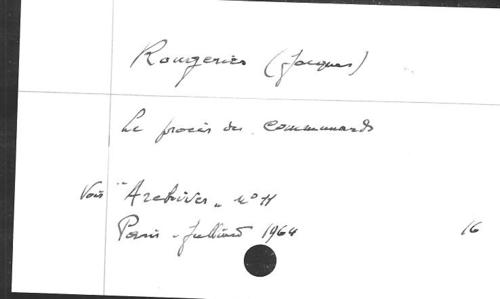 Rougerie (Jacques)
Le procès des communards
Voir "Archives" N° 11
Paris - Julliard 1964 16